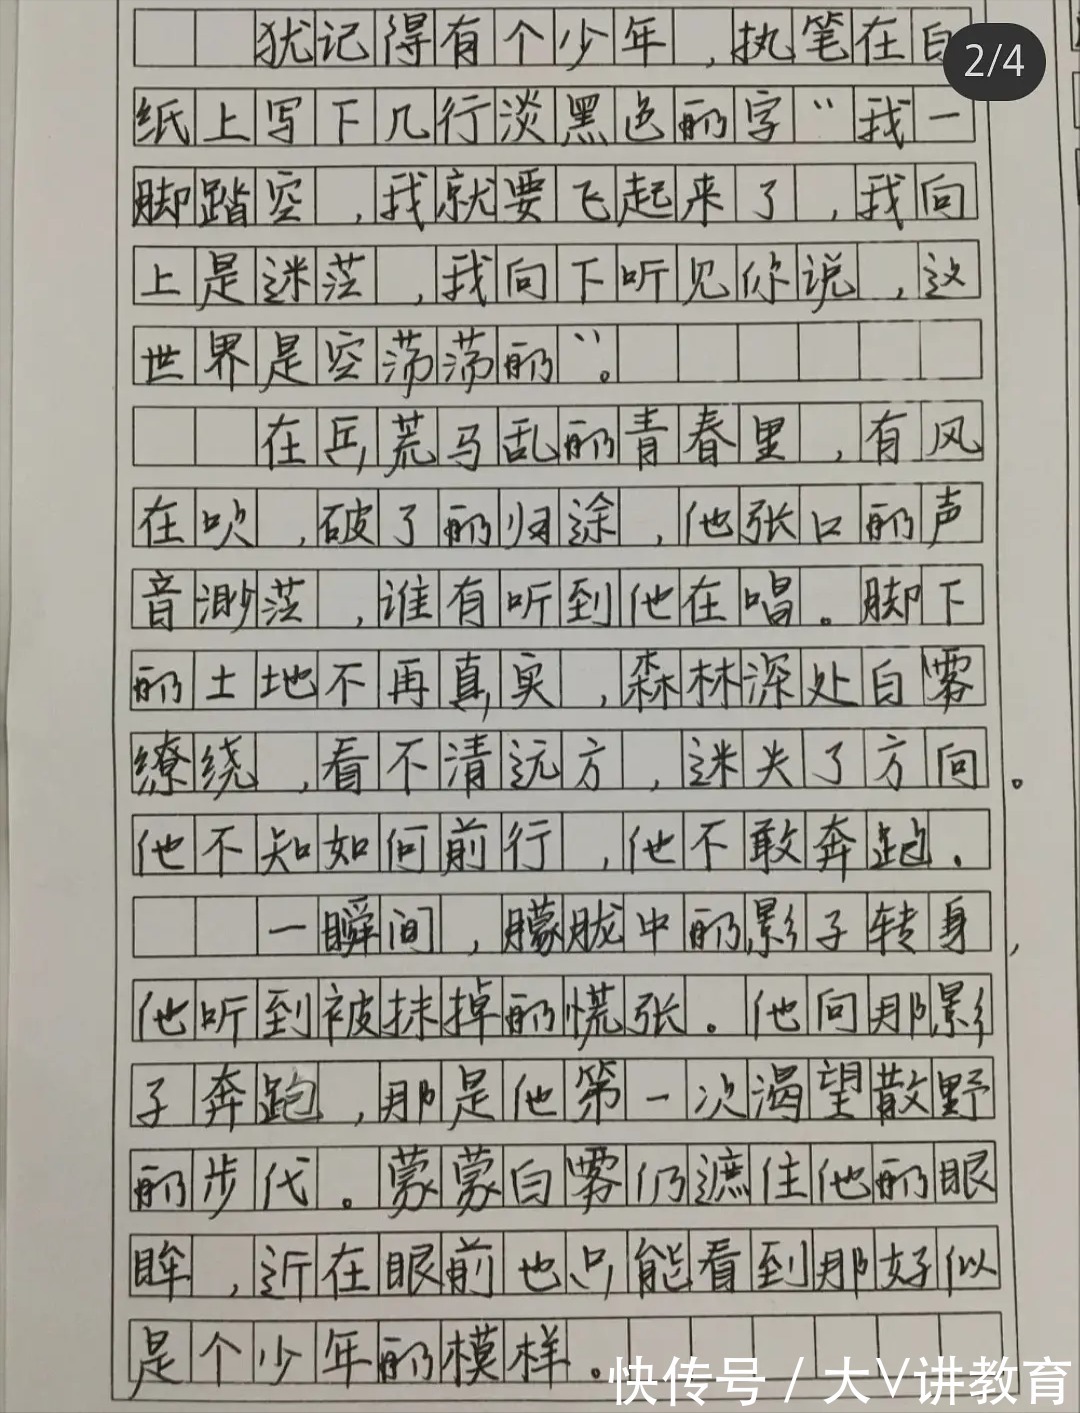 犹记得有个少年，执笔在白
2/4
纸上写下几行淡黑色的字“我一
脚踏空，我就要飞起来了，我向
上是迷茫，我向下听见你说，这
世界是空荡荡的”。
在兵荒马乱的青春里，有风
在吹，破了的归途，他张口的声
音渺茫，谁有听到他在唱。脚下
的土地不再真实，森林深处白雾
缭绕，看不清远方，迷失了方向。
他不知如何前行，他不敢奔跑.
一瞬间，朦胧中的影子转身，
他听到被抹掉的慌张。他向那影
子奔跑，那是他第一次渴望散野
的步伐。蒙蒙白雾仍遮住他的眼
眸，近在眼前也只能看到那好似
是个少年的模样。
快传号 / 大V讲教育